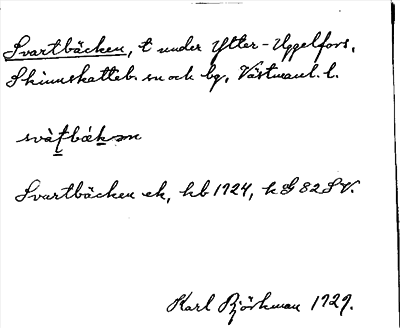 Svartbäcken, t under Ytter-Uggelfors,
Skinnskatteb. sn och bg, Västmanl. l.
svàt̠bák̠ən
Svartbäcken ek, hb 1724, k G 82 S V.
Karl Björkman 1929.